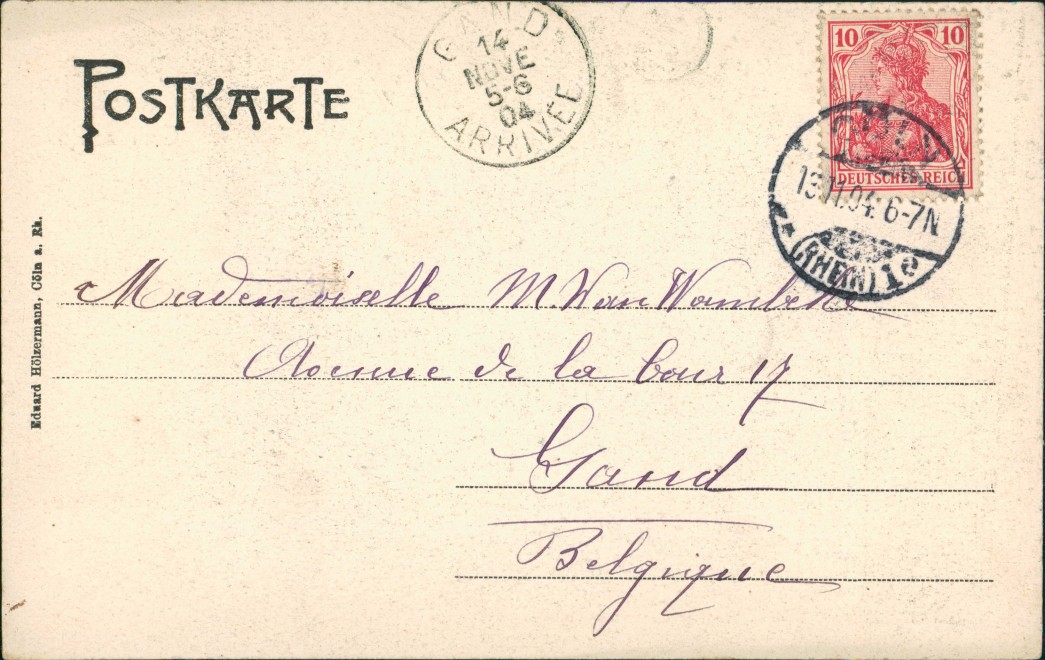 POSTKARTE
GAND
14
NOVE
5-6
04
ARRIVÉE
10 10
DEUTSCHES REICH
CÖLN
13.11.04. 6-7N
(RHEIN) 1
Eduard Hölzermann, Cöln a. Rh.
Mademoiselle M. Van Wambeke
Avenue de la Cour 17
Gand
Belgique